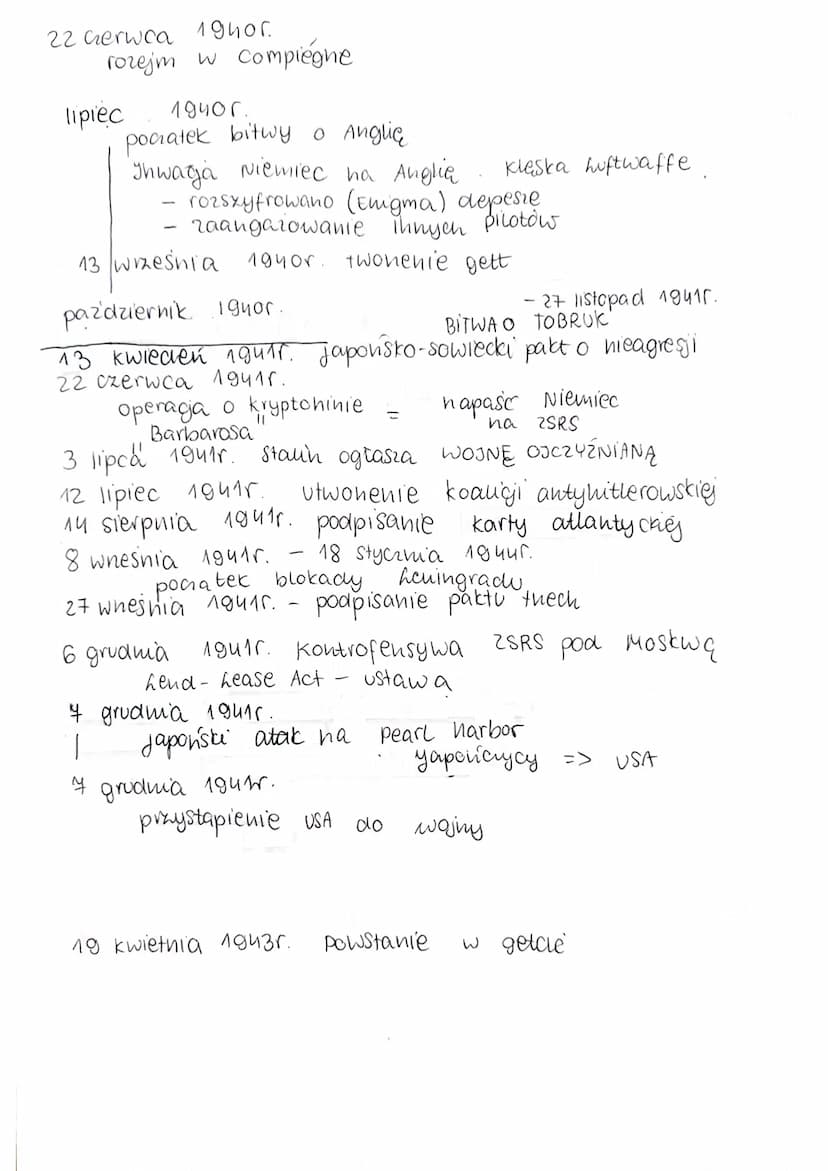 22 czerwca 1940r.
rozejm w Compiégne
lipiec 1940r.
początek bitwy o Anglię
Inwazja Niemiec na Anglię. Klęska Luftwaffe.
- rozszyfrowano (Enigma) depesze
- zaangażowanie innych pilotów
13 września 1940r. tworzenie gett
październik 1940r.
- 27 listopad 1941r.
BITWA O TOBRUK
13 kwiecień 1941r. Japońsko-sowiecki pakt o nieagresji
22 czerwca 1941r.
operacja o kryptonimie = napaść Niemiec
"Barbarosa" na ZSRS
3 lipca 1941r. Stalin ogłasza WOJNĘ OJCZYŹNIANĄ
12 lipiec 1941r. utworzenie koalicji antyhitlerowskiej
14 sierpnia 1941r. podpisanie karty atlantyckiej
8 września 1941r. - 18 stycznia 1944r.
początek blokady Leningradu
27 września 1941r. - podpisanie paktu trzech
6 grudnia 1941r. Kontrofensywa ZSRS pod Moskwą
Lend-Lease Act - ustawa
7 grudnia 1941r.
Japoński atak na pearl harbor
Japończycy => USA
7 grudnia 1941r.
przystąpienie USA do wojny
19 kwietnia 1943r. powstanie w getcie